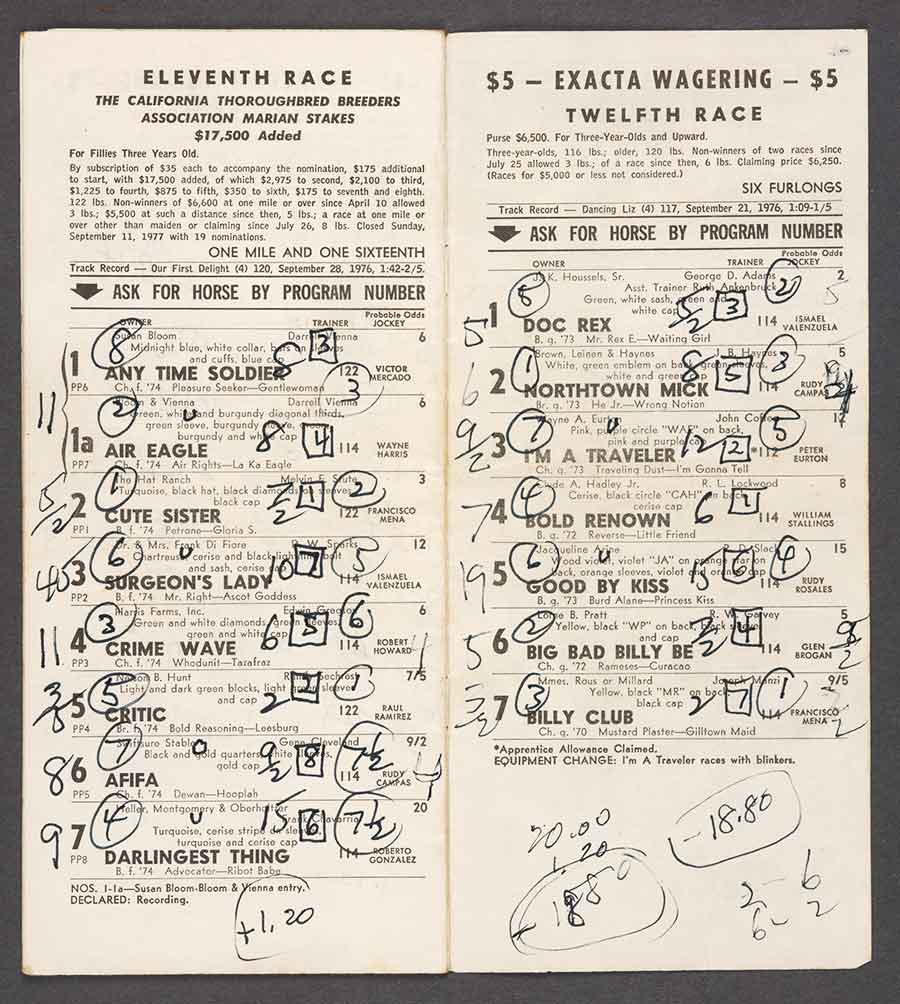 ELEVENTH RACE
THE CALIFORNIA THOROUGHBRED BREEDERS
ASSOCIATION MARIAN STAKES
$17,500 Added
For Fillies Three Years Old.
By subscription of $35 each to accompany the nomination, $175 additional
to start, with $17,500 added, of which $2,975 to second, $2,100 to third,
$1,225 to fourth, $875 to fifth, $350 to sixth, $175 to seventh and eighth.
122 lbs. Non-winners of $6,600 at one mile or over since April 10 allowed
3 lbs.; $5,500 at such a distance since then, 5 lbs.; a race at one mile or
over other than maiden or claiming since July 26, 8 lbs. Closed Sunday,
September 11, 1977 with 19 nominations.
ONE MILE AND ONE SIXTEENTH
Track Record — Our First Delight (4) 120, September 28, 1976, 1:42-2/5.
ASK FOR HORSE BY PROGRAM NUMBER
Probable Odds
OWNER TRAINER JOCKEY
8 Susan Bloom Darrell Vienna 3 6
Midnight blue, white collar, bars on sleeves
and cuffs, blue cap 8
1 ANY TIME SOLDIER 122 VICTOR MERCADO
PP6 Ch. f. '74 Pleasure Seeker—Gentlewoman 3
11
2 Bloom & Vienna Darrell Vienna 6
Green, white and burgundy diagonal thirds,
green sleeve, burgundy sleeve,
burgundy and white cap 8 4
1a AIR EAGLE 114 WAYNE HARRIS
PP7 Ch. f. '74 Air Rights—La Ka Eagle
1 The Hat Ranch Melvin F. Stute 3
Turquoise, black hat, black diamonds on sleeves,
black cap 7/2 1 2
5/2 2 CUTE SISTER 122 FRANCISCO MENA
PP1 B. f. '74 Petrone—Gloria S.
6 Dr. & Mrs. Frank Di Fiore W. Sparks 12
Chartreuse, cerise and black lightning bolt
and sash, cerise cap 10 7 5
45 3 SURGEON'S LADY 114 ISMAEL VALENZUELA
PP2 B. f. '74 Mr. Right—Ascot Goddess
3 Harris Farms, Inc. Edwin Gregson 6
Green and white diamonds, green sleeves,
green and white cap 6 5 6
11 4 CRIME WAVE 114 ROBERT HOWARD
PP3 Ch. f. '74 Whodunit—Tarafraz
5 Nelson B. Hunt 7/5
Light and dark green blocks, light sleeves
and cap 2 2 1
5 CRITIC 122 RAUL RAMIREZ
PP4 Br. f. '74 Bold Reasoning—Leesburg
7 Gene Cleveland 9/2
Black and gold quarters, white sleeves,
gold cap 9/2 8 7½
8 6 AFIFA 114 RUDY CAMPAS 4
PP5 Ch. f. '74 Dewan—Hooplah
4 Heller, Montgomery & Oberholtzer Frank Chavarria 20
Turquoise, cerise stripe on sleeves,
turquoise and cerise cap 15 6 7½
9 7 DARLINGEST THING 114 ROBERTO GONZALEZ
PP8 B. f. '74 Advocator—Ribot Babe
NOS. 1-1a—Susan Bloom-Bloom & Vienna entry.
DECLARED: Recording.
+1.20
$5 — EXACTA WAGERING — $5
TWELFTH RACE
Purse $6,500. For Three-Year-Olds and Upward.
Three-year-olds, 116 lbs.; older, 120 lbs. Non-winners of two races since
July 25 allowed 3 lbs.; of a race since then, 6 lbs. Claiming price $6,250.
(Races for $5,000 or less not considered.)
SIX FURLONGS
Track Record — Dancing Liz (4) 117, September 21, 1976, 1:09-1/5
ASK FOR HORSE BY PROGRAM NUMBER
Probable Odds
OWNER TRAINER JOCKEY
J. K. Houssels, Sr. George D. Adams 2 2
Asst. Trainer Ruth Ankenbruck 5
Green, white sash, green and
white cap 5/2 3
5 1 DOC REX 114 ISMAEL VALENZUELA
B. g. '73 Mr. Rex E.—Waiting Girl
1 Brown, Leinen & Haynes J. B. Haynes 3 5
White, green emblem on back, green sleeves,
white and green cap 8 5
6 2 NORTHTOWN MICK 114 RUDY CAMPAS
Br. g. '73 He Jr.—Wrong Notion
7 Wayne A. Eurton John Coffee 5 12
Pink, purple circle "WAE" on back,
pink and purple cap 12 2
9/2 3 I'M A TRAVELER *112 PETER EURTON
Ch. g. '73 Traveling Dust—I'm Gonna Tell
4 Clyde A. Hadley Jr. R. L. Lockwood 8
Cerise, black circle "CAH" on back,
cerise cap 6 1
7 4 BOLD RENOWN 114 WILLIAM STALLINGS
B. g. '72 Reverse—Little Friend
6 Jacqueline Avine R. D. Slack 4 15
violet, violet "JA" on orange
back, orange sleeves, violet and orange cap 15 6
19 5 GOOD BY KISS 114 RUDY ROSALES
B. g. '73 Burd Alane—Princess Kiss
2 B. Pratt R. W. Garvey 5
Yellow, black "WP" on back, black sleeves
and cap 7/2 4
5 6 BIG BAD BILLY BE 114 GLEN BROGAN
Ch. g. '72 Rameses—Curacao
3 Mmes. Rous or Millard Joseph Manzi 1 9/5
Yellow, black "MR" on back,
black cap 2 7
7 BILLY CLUB 114 FRANCISCO MENA
Ch. g. '70 Mustard Plaster—Gilltown Maid
*Apprentice Allowance Claimed.
EQUIPMENT CHANGE: I'm A Traveler races with blinkers.
20.00
1.20
18.80
-18.80
2-6
6-2